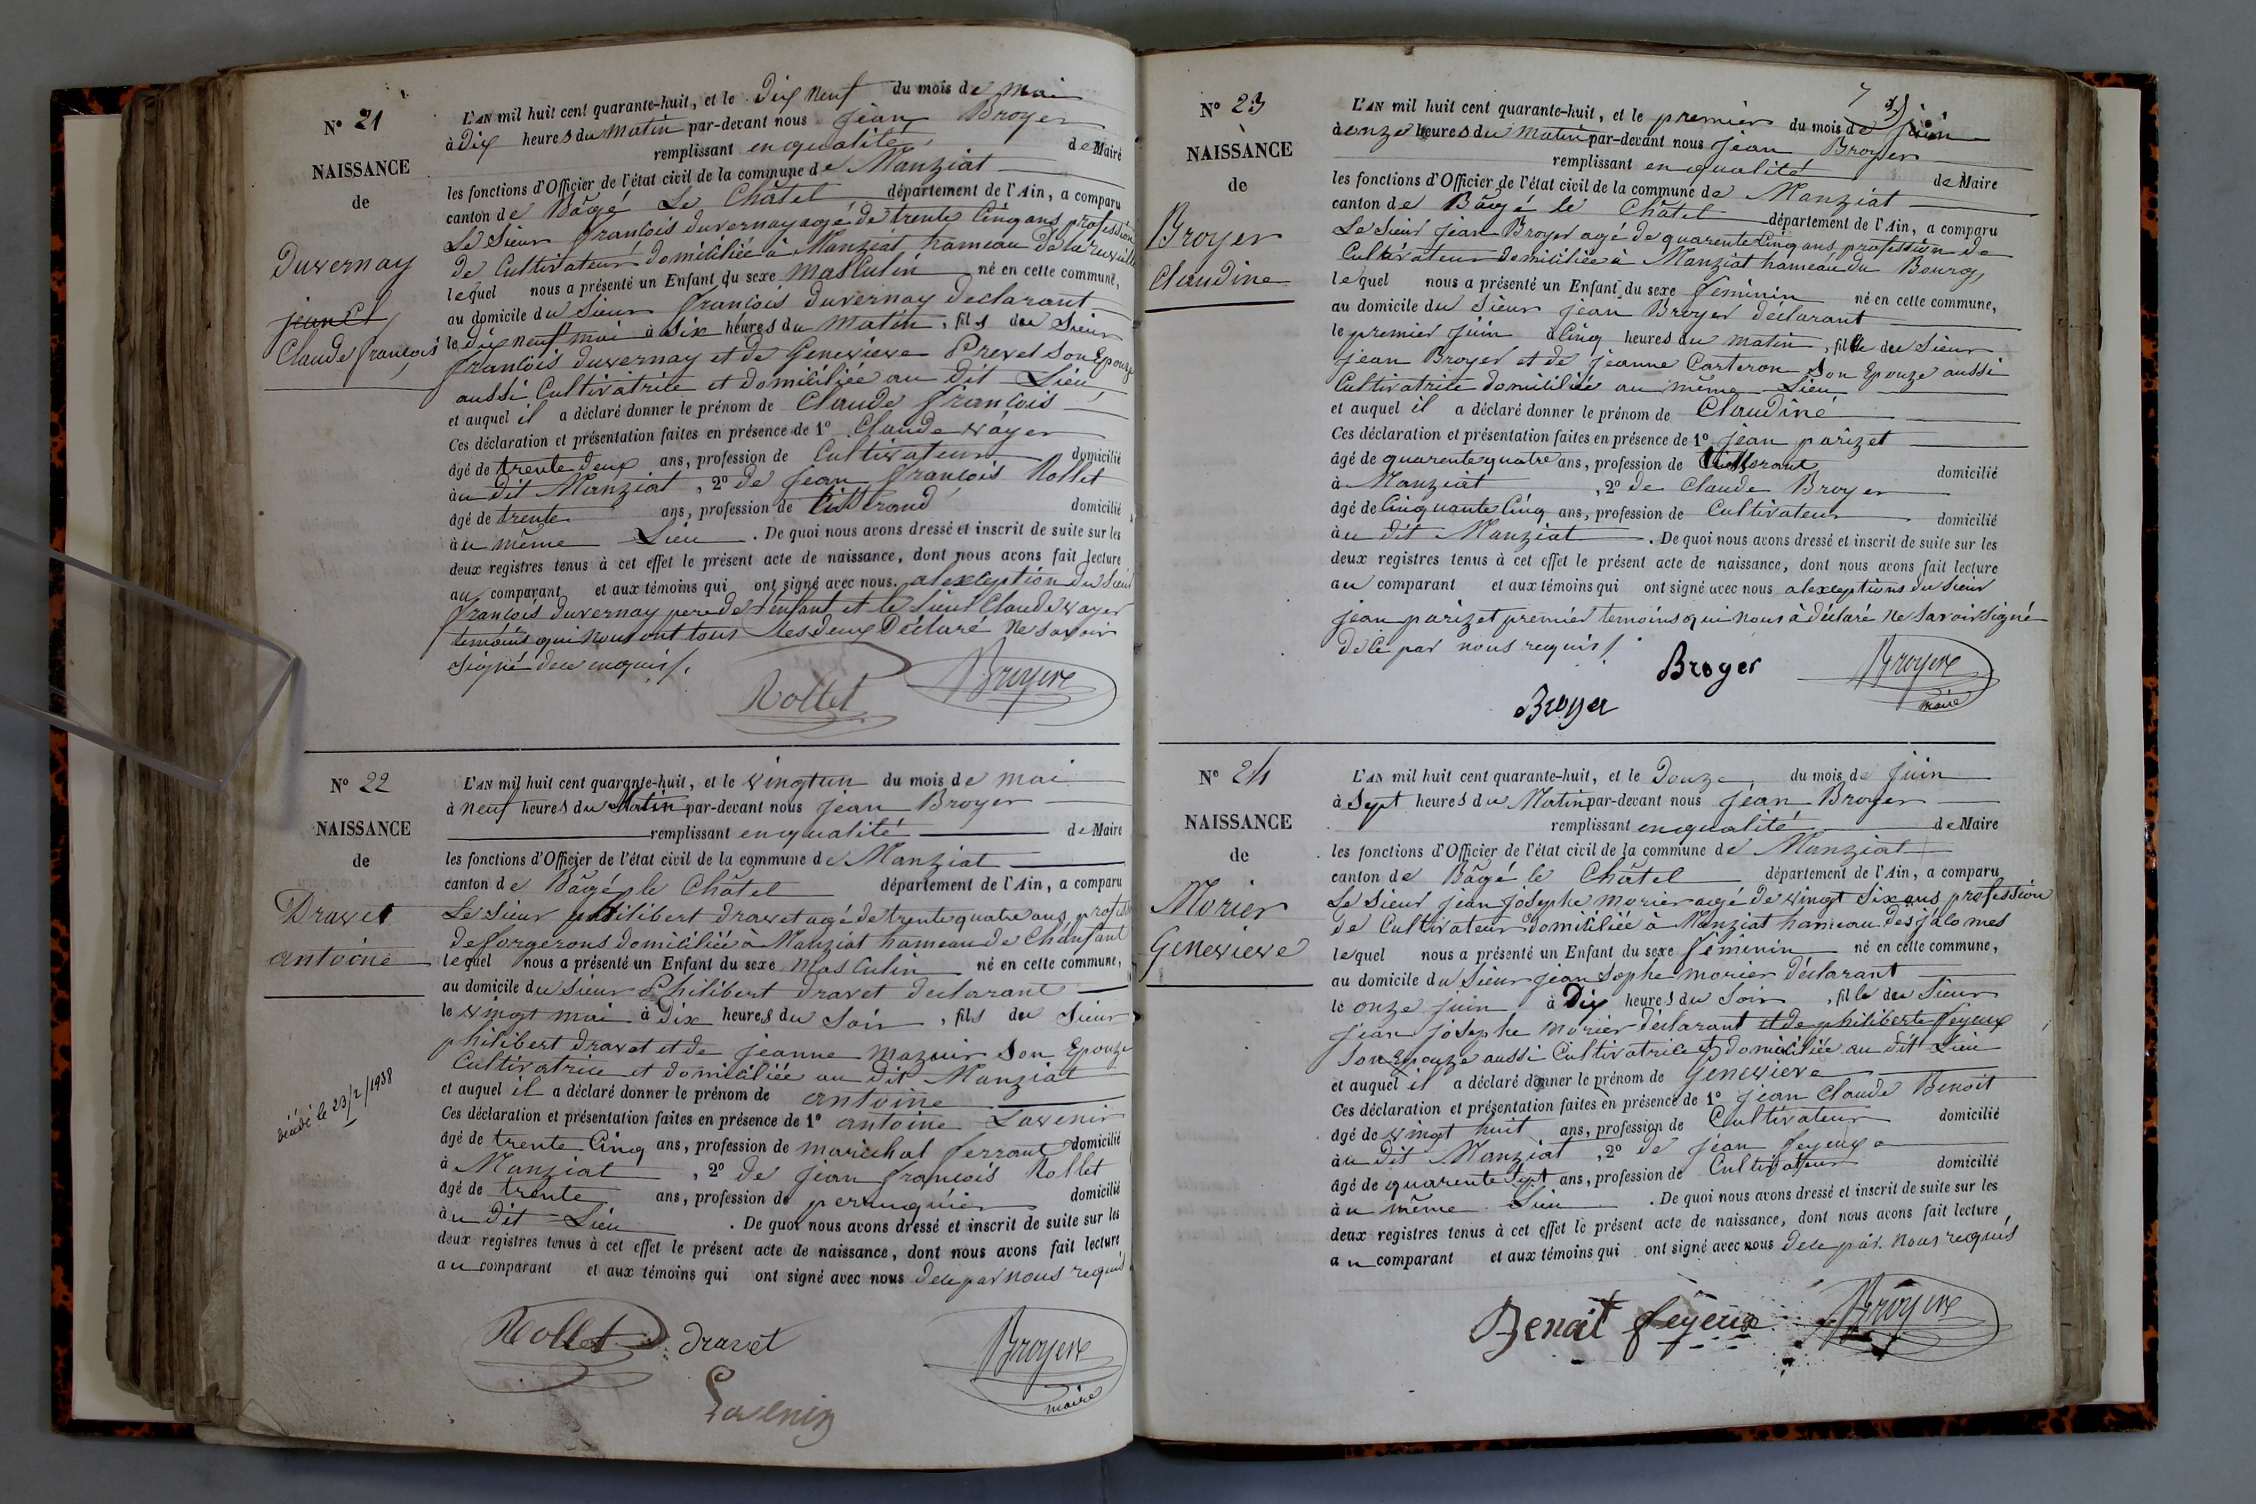 N° 21
NAISSANCE
de
Duvernay
jean Cl
Claude françois
L'AN mil huit cent quarante-huit, et le Dix neuf du mois de mai
à Dix heures du matin par-devant nous jean Broyer
remplissant en qualité de Maire
les fonctions d'Officier de l'état civil de la commune de Manziat
canton de Bâgé Le Châtel département de l'Ain, a comparu
Le Sieur françois duvernay agé de trente Cinq ans profession
de Cultivateur domiciliée à Manziat hameau de la
lequel nous a présenté un Enfant du sexe masculin né en cette commune,
au domicile du Sieur françois duvernay declarant
le dix neuf mai à Six heures du matin, fils du Sieur
françois duvernay et de Genevieve Prevel Son Epouze
aussi Cultivatrice et domiciliée au dit Lieu
et auquel il a déclaré donner le prénom de Claude françois
Ces déclaration et présentation faites en présence de 1° Claude wayer
âgé de trente deux ans, profession de Cultivateur domicilié
à u dit Manziat, 2° de jean françois Rollet
âgé de trente ans, profession de domicilié
à u même Lieu. De quoi nous avons dressé et inscrit de suite sur les
deux registres tenus à cet effet le présent acte de naissance, dont nous avons fait lecture
au comparant et aux témoins qui ont signé avec nous. alexception du Sieur
françois duvernay pere de l'enfant et le Sieur Claude wayer
temoins qui nous ont tous les deux Déclaré ne savoir
signé dece enquis /.
Rollet Broyere
N° 22
NAISSANCE
de
Dravet
antoine
décédé le 23/2/1938
L'AN mil huit cent quarante-huit, et le vingtun du mois de mai
à neuf heures du Matin par-devant nous jean Broyer
remplissant en qualité de Maire
les fonctions d'Officier de l'état civil de la commune de Manziat
canton de Bâgé le Châtel département de l'Ain, a comparu
Le Sieur philibert dravet agé de trente quatre ans
de forgerons domiciliée à Manziat hameau de Chanfant
lequel nous a présenté un Enfant du sexe masculin né en cette commune,
au domicile du Sieur Philibert dravet declarant
le vingt mai à dix heures du Soir, fils du Sieur
philibert dravet et de jeanne mazuir Son Epouze
Cultivatrice et domiciliée au dit Manziat
et auquel il a déclaré donner le prénom de antoine
Ces déclaration et présentation faites en présence de 1° antoine Lavenir
âgé de trente Cinq ans, profession de marichal ferrant domicilié
à Manziat, 2° de jean françois Rollet
âgé de trente ans, profession de perruquier domicilié
à u dit Lieu. De quoi nous avons dressé et inscrit de suite sur les
deux registres tenus à cet effet le présent acte de naissance, dont nous avons fait lecture
au comparant et aux témoins qui ont signé avec nous dece par nous requis
Rollet dravet Broyere
maire
Lavenir
7
N° 23
NAISSANCE
de
Broyer
Claudine
L'AN mil huit cent quarante-huit, et le premier du mois de juin
à onze heures du matin par-devant nous jean Broyer
remplissant en qualité de Maire
les fonctions d'Officier de l'état civil de la commune de Manziat
canton de Bâgé le Châtel département de l'Ain, a comparu
Le Sieur jean Broyer agé de quarente Cinq ans profession de
Cultivateur domiciliée à Manziat hameau du Bourg
lequel nous a présenté un Enfant du sexe feminin né en cette commune,
au domicile du Sieur jean Broyer déclarant
le premier juin à Cinq heures du matin, fille du Sieur
jean Broyer et de jeanne Carteron Son Epouze aussi
Cultivatrice domiciliée au même Lieu
et auquel il a déclaré donner le prénom de Claudine
Ces déclaration et présentation faites en présence de 1° jean parizet
âgé de quarente quatre ans, profession de domicilié
à Manziat, 2° de Claude Broyer
âgé de Cinquante Cinq ans, profession de Cultivateur domicilié
à u dit Manziat. De quoi nous avons dressé et inscrit de suite sur les
deux registres tenus à cet effet le présent acte de naissance, dont nous avons fait lecture
au comparant et aux témoins qui ont signé avec nous alexceptions du Sieur
jean parizet premier temoins qui nous à déclaré ne savoir signé
dece par nous requis /.
Broyer Broyere
maire
Broyer
N° 24
NAISSANCE
de
Morier
Genevieve
L'AN mil huit cent quarante-huit, et le Douze du mois de juin
à Sept heures du Matin par-devant nous jean Broyer
remplissant en qualité de Maire
les fonctions d'Officier de l'état civil de la commune de Manziat
canton de Bâgé le Châtel département de l'Ain, a comparu
Le Sieur jean josephe morier agé de vingt Six ans profession
de Cultivateur domiciliée à Manziat hameau des jalomes
lequel nous a présenté un Enfant du sexe féminin né en cette commune,
au domicile du Sieur jean Sophe morier déclarant
le onze juin à Dix heures du Soir, fille du Sieur
jean josephe morier déclarant et de philiberte feyeux
Son Epouze aussi Cultivatrice et domiciliée au dit Lieu
et auquel il a déclaré donner le prénom de Genevieve
Ces déclaration et présentation faites en présence de 1° jean Claude Benoit
âgé de vingt huit ans, profession de Cultivateur domicilié
à u dit Manziat, 2° de jean feyeux
âgé de quarente Sept ans, profession de Cultivateur domicilié
à u même Lieu. De quoi nous avons dressé et inscrit de suite sur les
deux registres tenus à cet effet le présent acte de naissance, dont nous avons fait lecture
au comparant et aux témoins qui ont signé avec nous dece par nous requis
Benoit feyeux Broyere